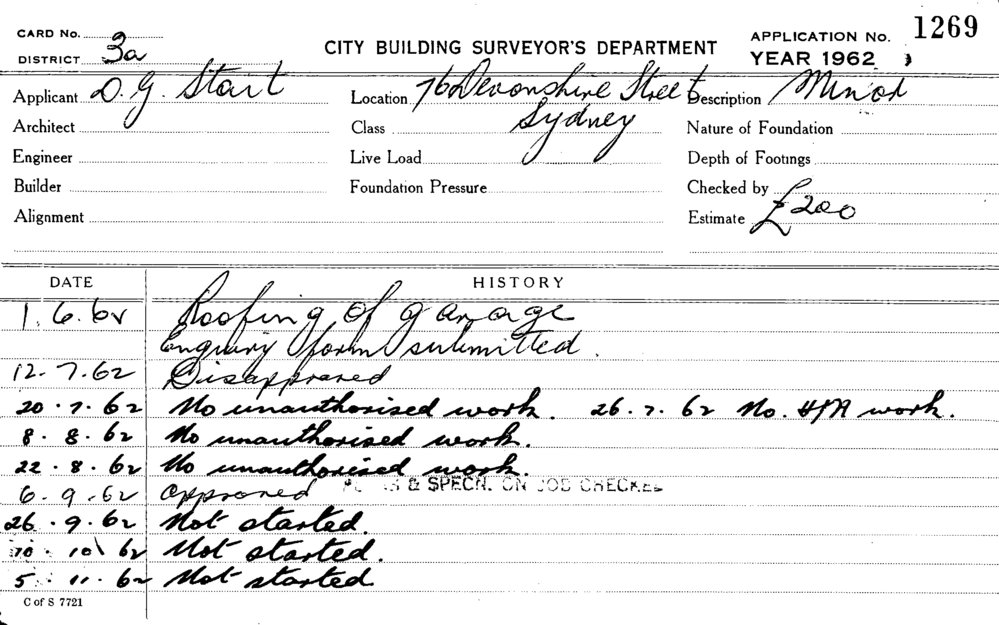 CARD No.
DISTRICT 3a
CITY BUILDING SURVEYOR'S DEPARTMENT
APPLICATION No. 1269
YEAR 1962
Applicant D.G. Start Location 76 Devonshire Street Description Minor
Architect Class Sydney Nature of Foundation
Engineer Live Load Depth of Footings
Builder Foundation Pressure Checked by
Alignment Estimate £200
DATE HISTORY
1.6.62 Roofing of garage
Enquiry form submitted.
12.7.62 Disapproved
20.7.62 No unauthorised work. 26.7.62 No work.
8.8.62 No unauthorised work.
22.8.62 No unauthorised work.
6.9.62 Approved & SPECN. ON JOB CHECKED
26.9.62 Not started.
10.10.62 Not started.
5.11.62 Not started
C of S 7721